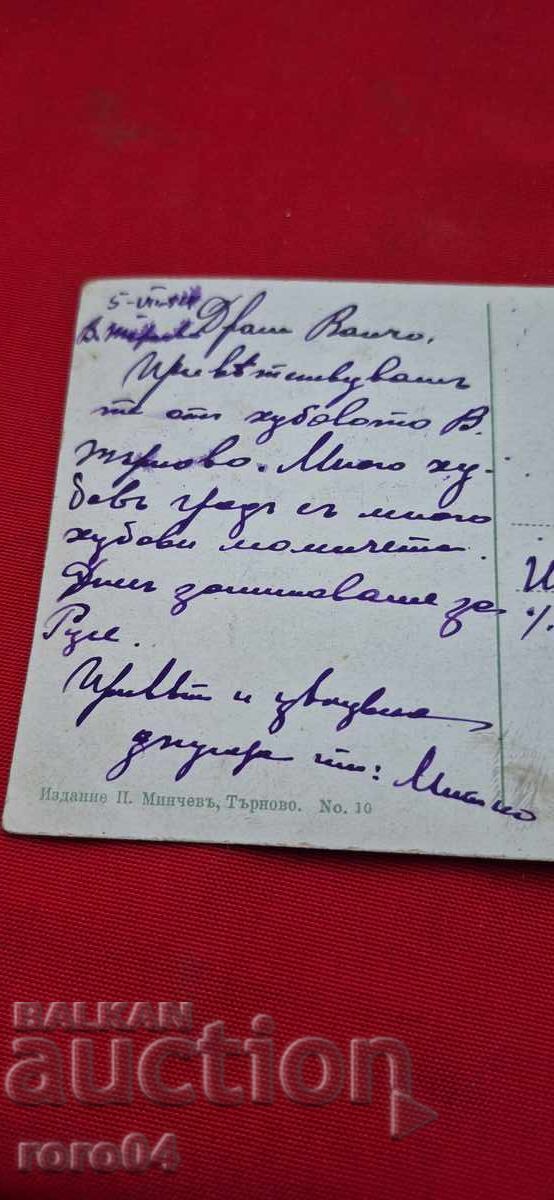 5-VI-
В. Търново
Драги Ванчо,
Привѣтствувамъ
те отъ хубавото В.
Търново. Много ху-
бавъ градъ съ много
хубави момичета.
Днесъ заминаваме за
Русе.
Привѣт и цѣлувка
другаря ти: Митко
Издание П. Минчевъ, Търново. No. 10
BALKAN
auction
roro04